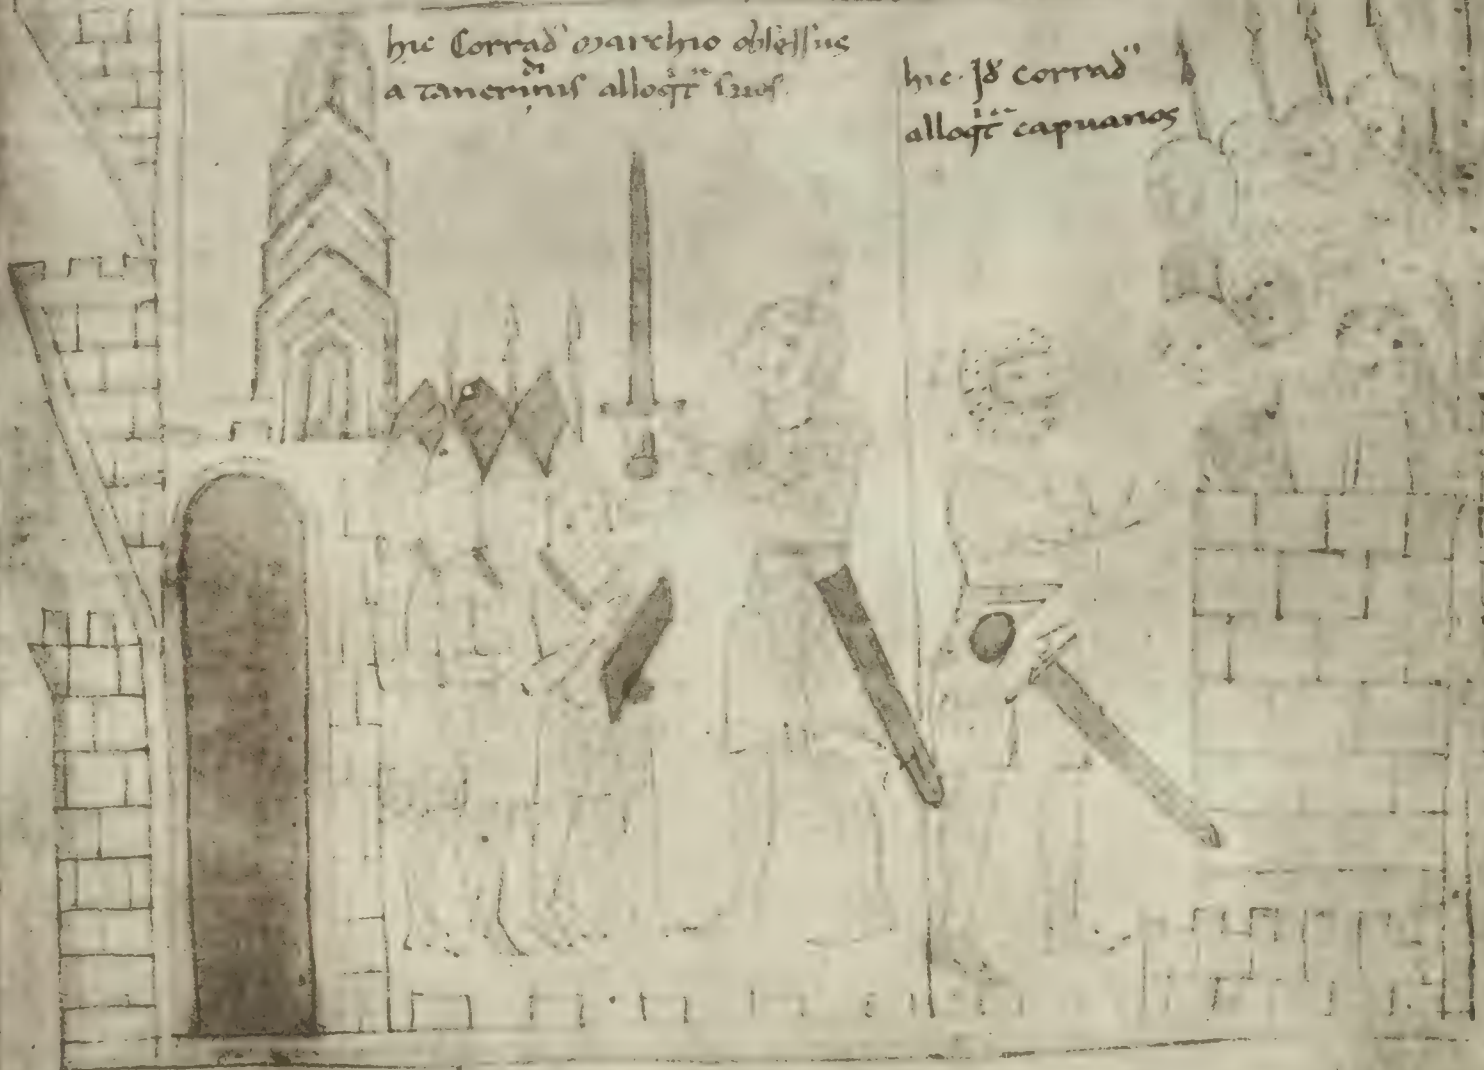 hic Corrad' marchio obsessus
a tancridinis alloqͥt̃ suos
hic · Id' corrad'
alloqͥt̃ capuanos